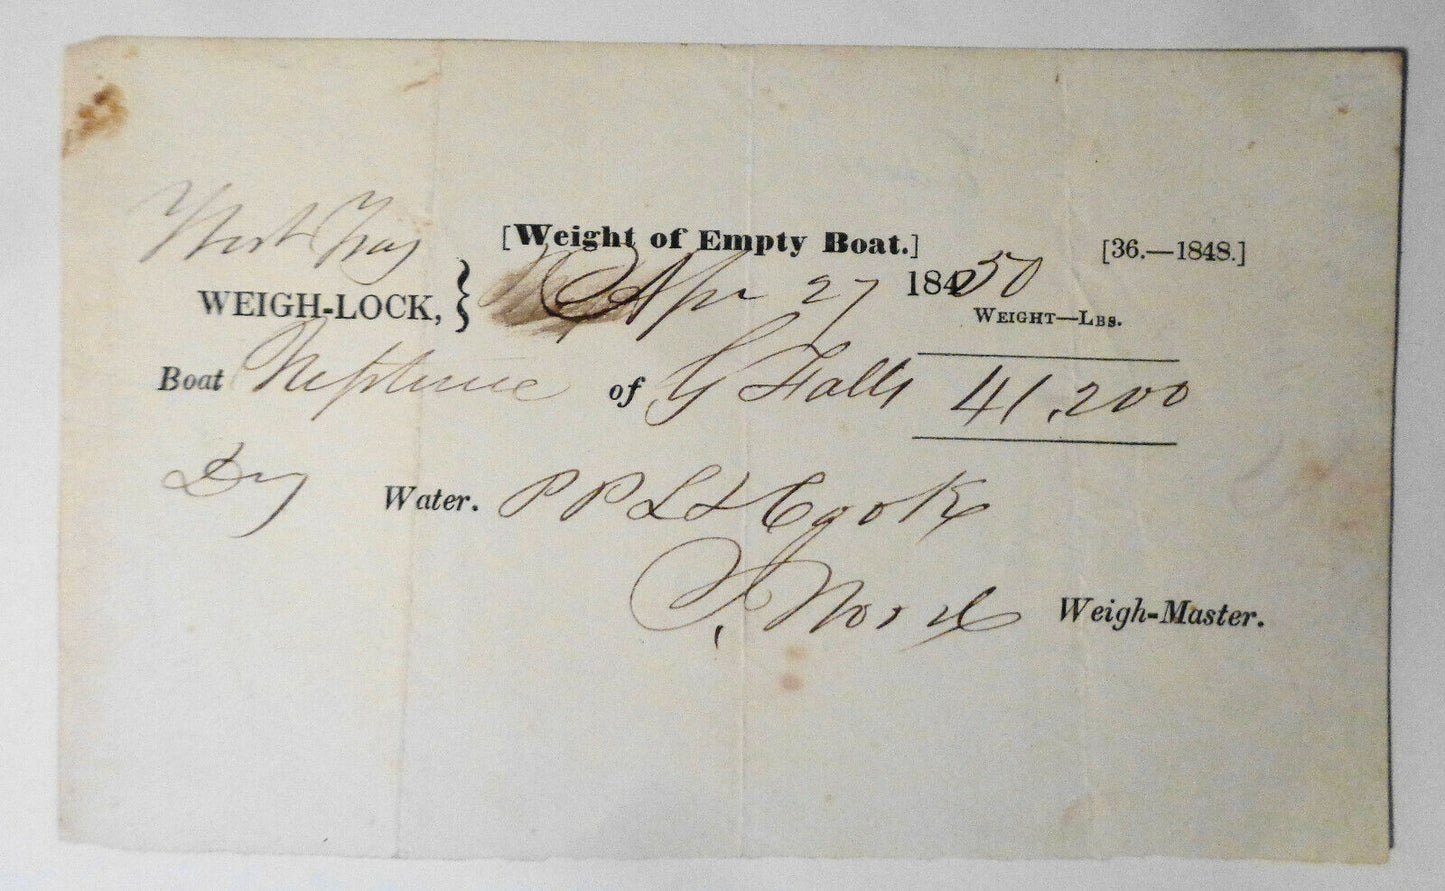 West Troy
[Weight of Empty Boat.] [36.—1848.]
WEIGH-LOCK, } Apr 27 184 50
WEIGHT—LBS.
Boat Neptune of G Falls 41,200
Dry Water. P P L & H Cook
Weigh-Master.